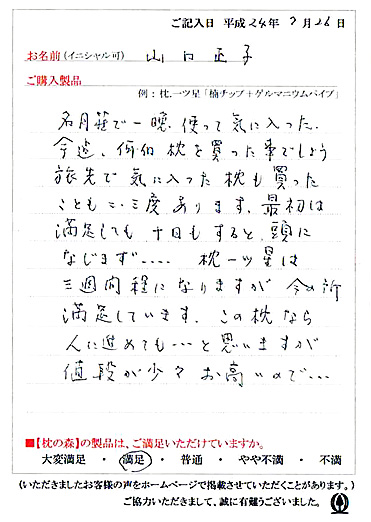 ご記入日 平成24年7月26日
お名前(イニシャル可) 山口正子
ご購入製品
例:枕.一ツ星「楠チップ+ゲルマニウムパイプ」
名月荘で一晩.使って気に入った.
今迄、何個枕を買った事でしょう
旅先で気に入った枕も買った
ことも二.三度あります。最初は
満足しても十日もすると、頭に
なじまず‥‥ 枕一ツ星は
三週間程になりますが今の所
満足しています。この枕なら
人に進めても‥と思いますが
値段が少々お高いので‥‥
■【枕の森】の製品は、ご満足いただけていますか。
大変満足 ・ 満足 ・ 普通 ・ やや不満 ・ 不満
(いただきましたお客様の声をホームページで掲載させていただくことがあります。)
ご協力いただきまして、誠に有難うございました。